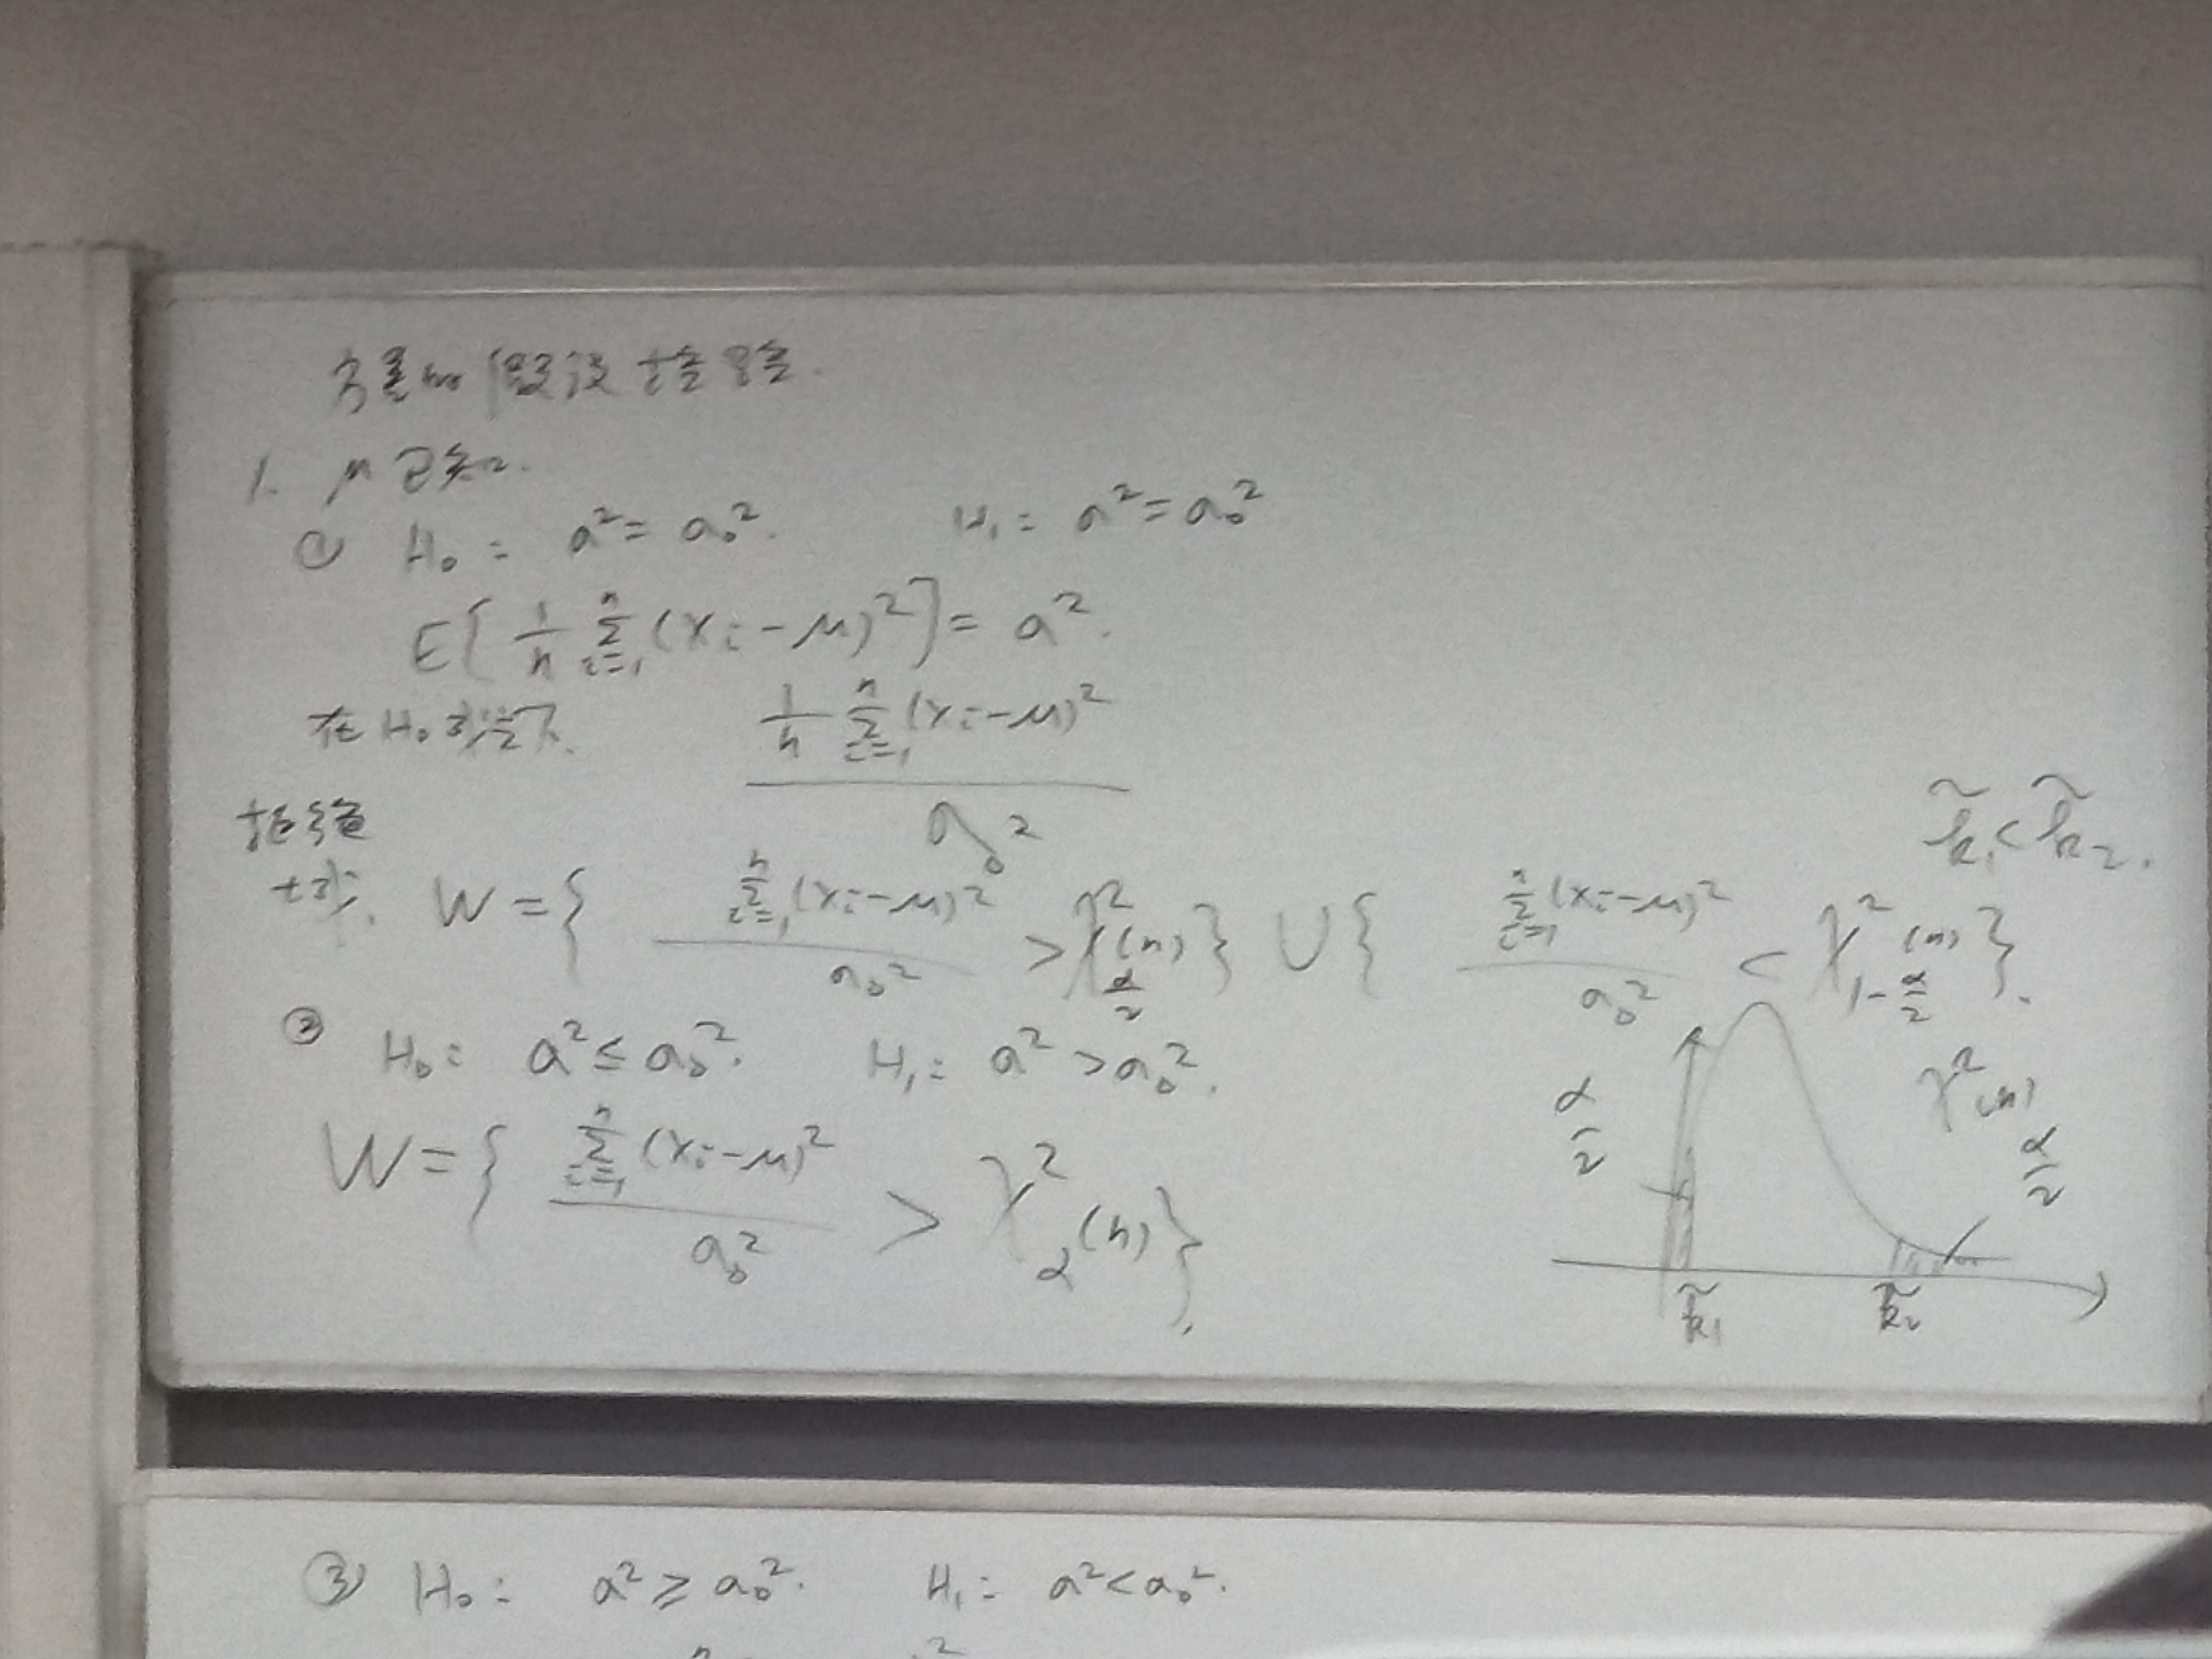 方差的假设检验.
1. μ已知.
① H₀: a² = a₀². H₁: a² = a₀²
E[1/n Σᵢ₌₁ⁿ (Xᵢ-μ)²] = a².
在H₀成立下. (1/n Σᵢ₌₁ⁿ (Xᵢ-μ)²) / a₀²
k̃₁ < k̃₂.
拒绝域. W = { Σᵢ₌₁ⁿ (Xᵢ-μ)² / a₀² > χ²_{α/2}(n) } ∪ { Σᵢ₌₁ⁿ (Xᵢ-μ)² / a₀² < χ²_{1-α/2}(n) }.
② H₀: a² ≤ a₀². H₁: a² > a₀².
W = { Σᵢ₌₁ⁿ (Xᵢ-μ)² / a₀² > χ²_α(n) }.
χ²(n)
α/2
α/2
k̃₁ k̃₂
③ H₀: a² ≥ a₀². H₁: a² < a₀².